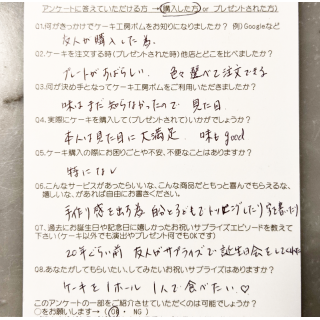 アンケートに答えていただける方 → 購入した方 or プレゼントされた方)
Q1.何がきっかけでケーキ工房ボムをお知りになりましたか? 例)Googleなど
友人が購入した為。
Q2.ケーキを注文する時(プレゼントされた時)他店とどこを比べましたか?
プレートがすばらしい。 色々選べて注文できる
Q3.何が決め手となってケーキ工房ボムをご利用いただきましたか?
味はまだ知らなかったので 見た目
Q4.実際にケーキを購入して(プレゼントされて)いかがでしたか?
本人は見た目に大満足 味もgood
Q5.ケーキ購入の際にお困りごとや不安、不便なことはありますか?
特になし
Q6.こんなサービスがあったらいいな、こんな商品だともっと喜んでもらえるな、
嬉しいな、があれば自由にお書きください。
手作り感を出す為 トッピングしたり
Q7.過去にお誕生日や記念日に嬉しかったお祝いサプライズエピソードを教えて
下さい(ケーキ以外でも演出やプレゼント何でもOKです)
20年ぐらい前 友人がサプライズで誕生日会をしてくれた
Q8.あなたがしてもらいたい、してみたいお祝いサプライズはありますか?
ケーキを1ホール 1人で食べたい♡
このアンケートの一部をご紹介させていただくのは可能でしょうか?
○をお願いします→ ( OK ・ NG )